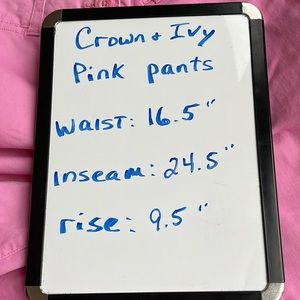 Crown + Ivy
Pink pants
Waist: 16.5"
Inseam: 24.5"
rise: 9.5"